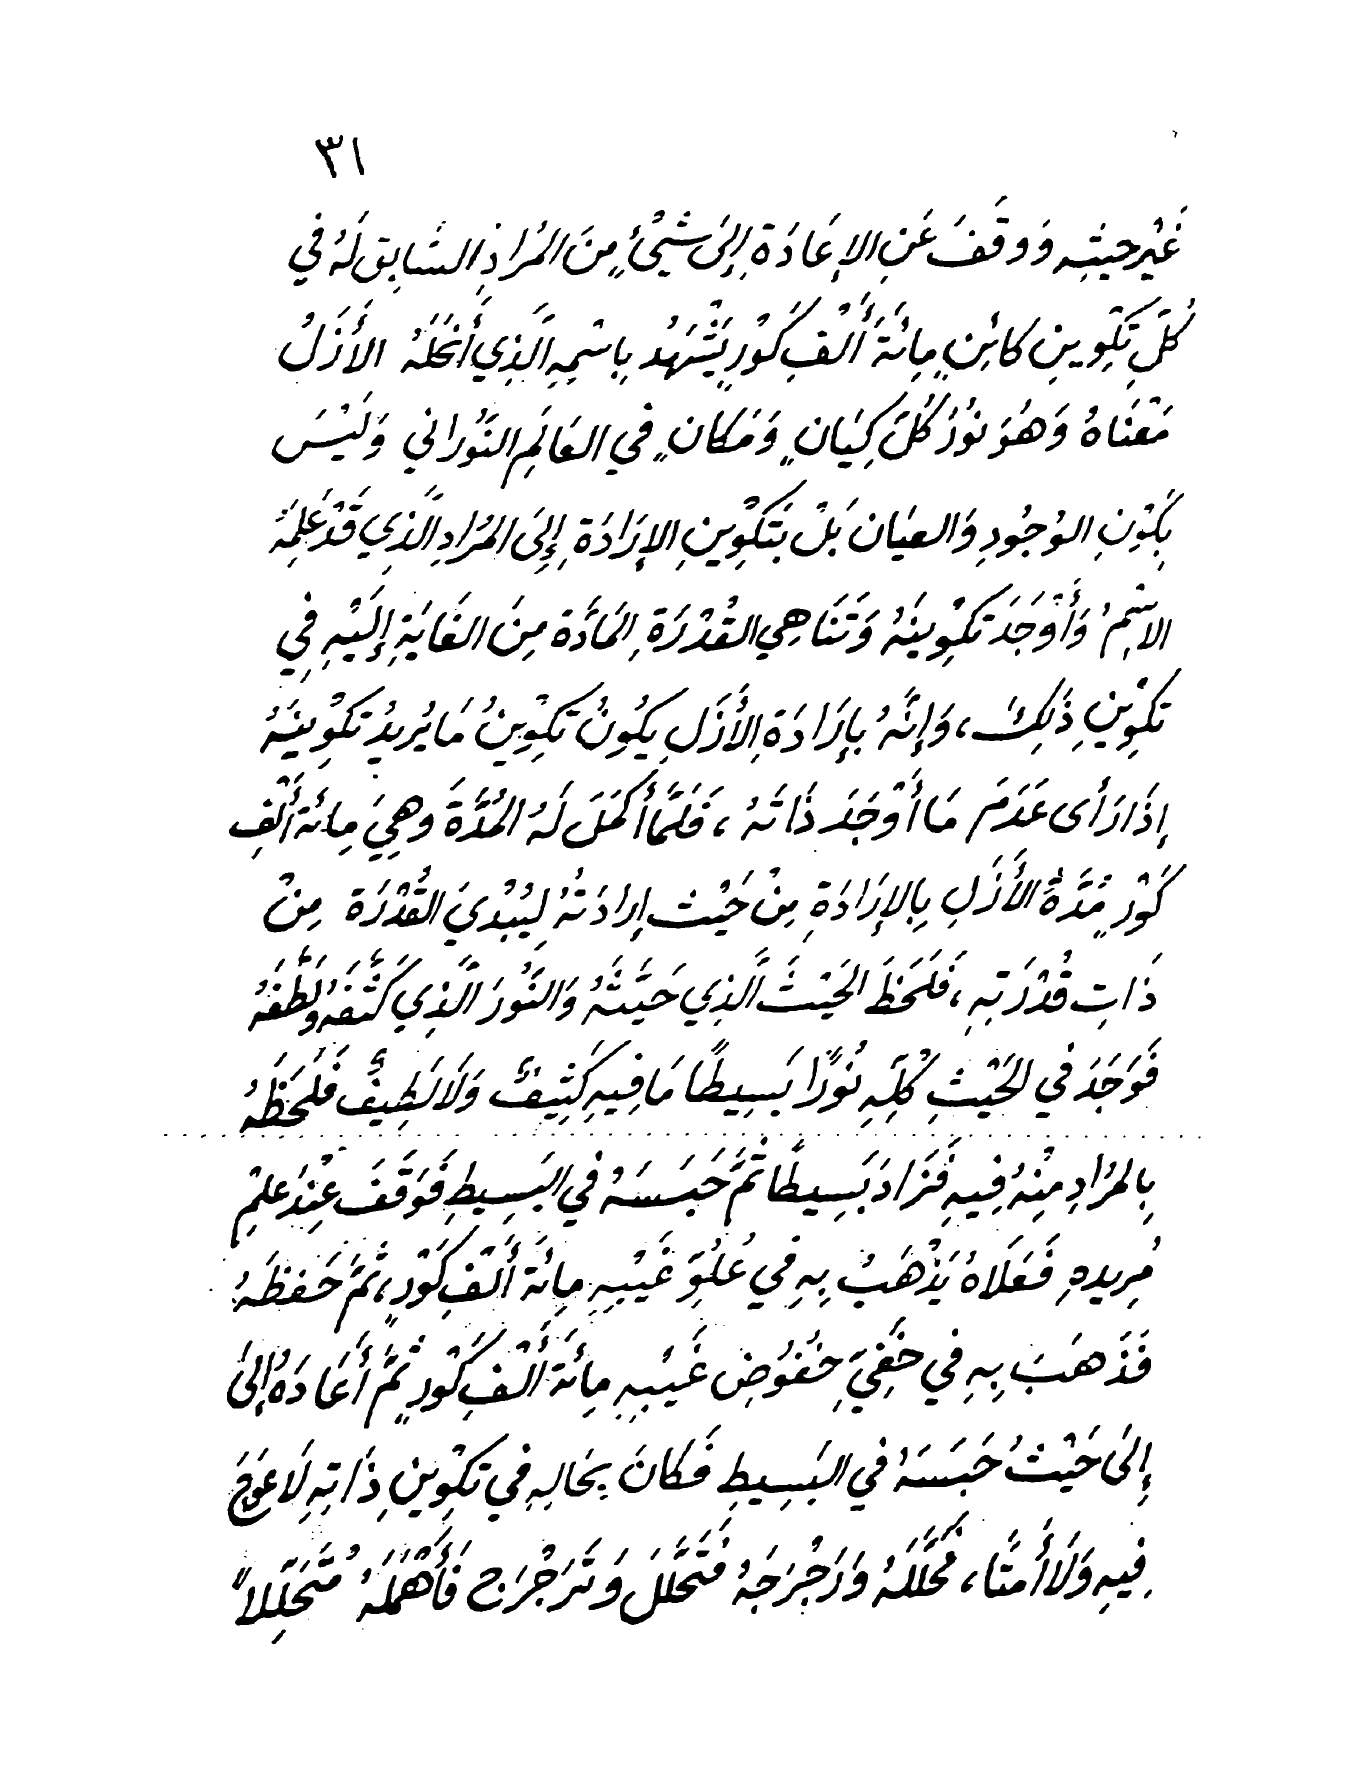 ٣١
غَيْرِ حيثِهِ وَوقَفَ عَنِ الإعَادَةِ إلىَ شَيْئٍ مِنَ المُرادِ السَّابِقِ لَهُ في
كُلِّ تكْوِينِ كائِنٍ مِائَةَ أَلْفِ كَوْرٍ يَشْهَدُ بِاسْمِهِ الَّذِي أَنحَلَهُ الأَزَلُ
مَعْنَاهُ وَهُوَ نُورُ كُلِّ كِيَانٍ وَمَكانٍ في العَالَمِ النُّورَاني وَلَيْسَ
بِكَوْنِ الوُجُودِ وَالعيَانِ بَلْ بِتَكْوِينِ الإرَادَةِ إلىَ المُرَادِ الَّذِي قَدْ عَلِمَهُ
الاسْمُ وَأَوْجَدَ تكْوِينَهُ وَتَنَاهِي القُدْرَةِ المَادَّة مِنَ الغَايَةِ إلَيْهِ فِي
تكْوِينِ ذَلِكَ، وَإنَّهُ بإرَادَةِ الأَزَلِ يكُونُ تكْوِينُ مَا يُرِيدُ تكْوِينَهُ
إذَا رَأى عَدَمَ مَا أَوْجَدَ ذَاتَهُ، فَلَمَّا أَكمَلَ لَهُ المُدَّةَ وَهِيَ مِائَة أَلْفِ
كَوْرٍ مُدَّةُ الأَزَلِ بِالإرَادَةِ مِنْ حَيْث إرادَتُهُ لِيُبْدِيَ القُدْرَة مِنْ
ذَاتِ قُدْرَتِهِ، فَلَحَظَ الحَيْثَ الَّذِي حَيَّثَهُ وَالنُّورَ الَّذِي كَثَّفَهُ وَلَطَّفَهُ
فَوَجَدَ في الحَيْثِ كُلِّهِ نُورًا بَسِيطًا مَا فِيهِ كَثِيفٌ وَلَا لَطِيفٌ فَلَحَظَهُ
بِالمُرَادِ مِنْهُ فِيهِ فَزَادَ بَسِيطًا ثُمَّ حَبَسَهُ في البَسِيطِ فَوَقَفَ عِنْدَ عِلْمِ
مُرِيدِهِ فَعَلَاهُ يَذْهَبُ بِهِ في عُلُوِّ غَيْبِهِ مِائَة أَلْفِ كَوْرٍ، ثُمَّ حَفظَهُ
فَذَهَبَ بِهِ في خَفِيِّ خُفُوضِ غَيْبِهِ مِائَة أَلْفِ كَوْرٍ ثُمَّ أَعَادَهُ إلىَ
إلىَ حَيْثُ حَبَسَهُ في البَسِيطِ فَكانَ بِحَالِهِ في تكْوِينِ ذَاتِهِ لَا عِوَجَ
فِيهِ وَلَا أَمْتًا، فَحَلَّلَهُ وَرَجْرَجَهُ فَتَحَلَّلَ وَتَرَجْرَج فَأَهْمَلَهُ مُتَحَلِّلاً